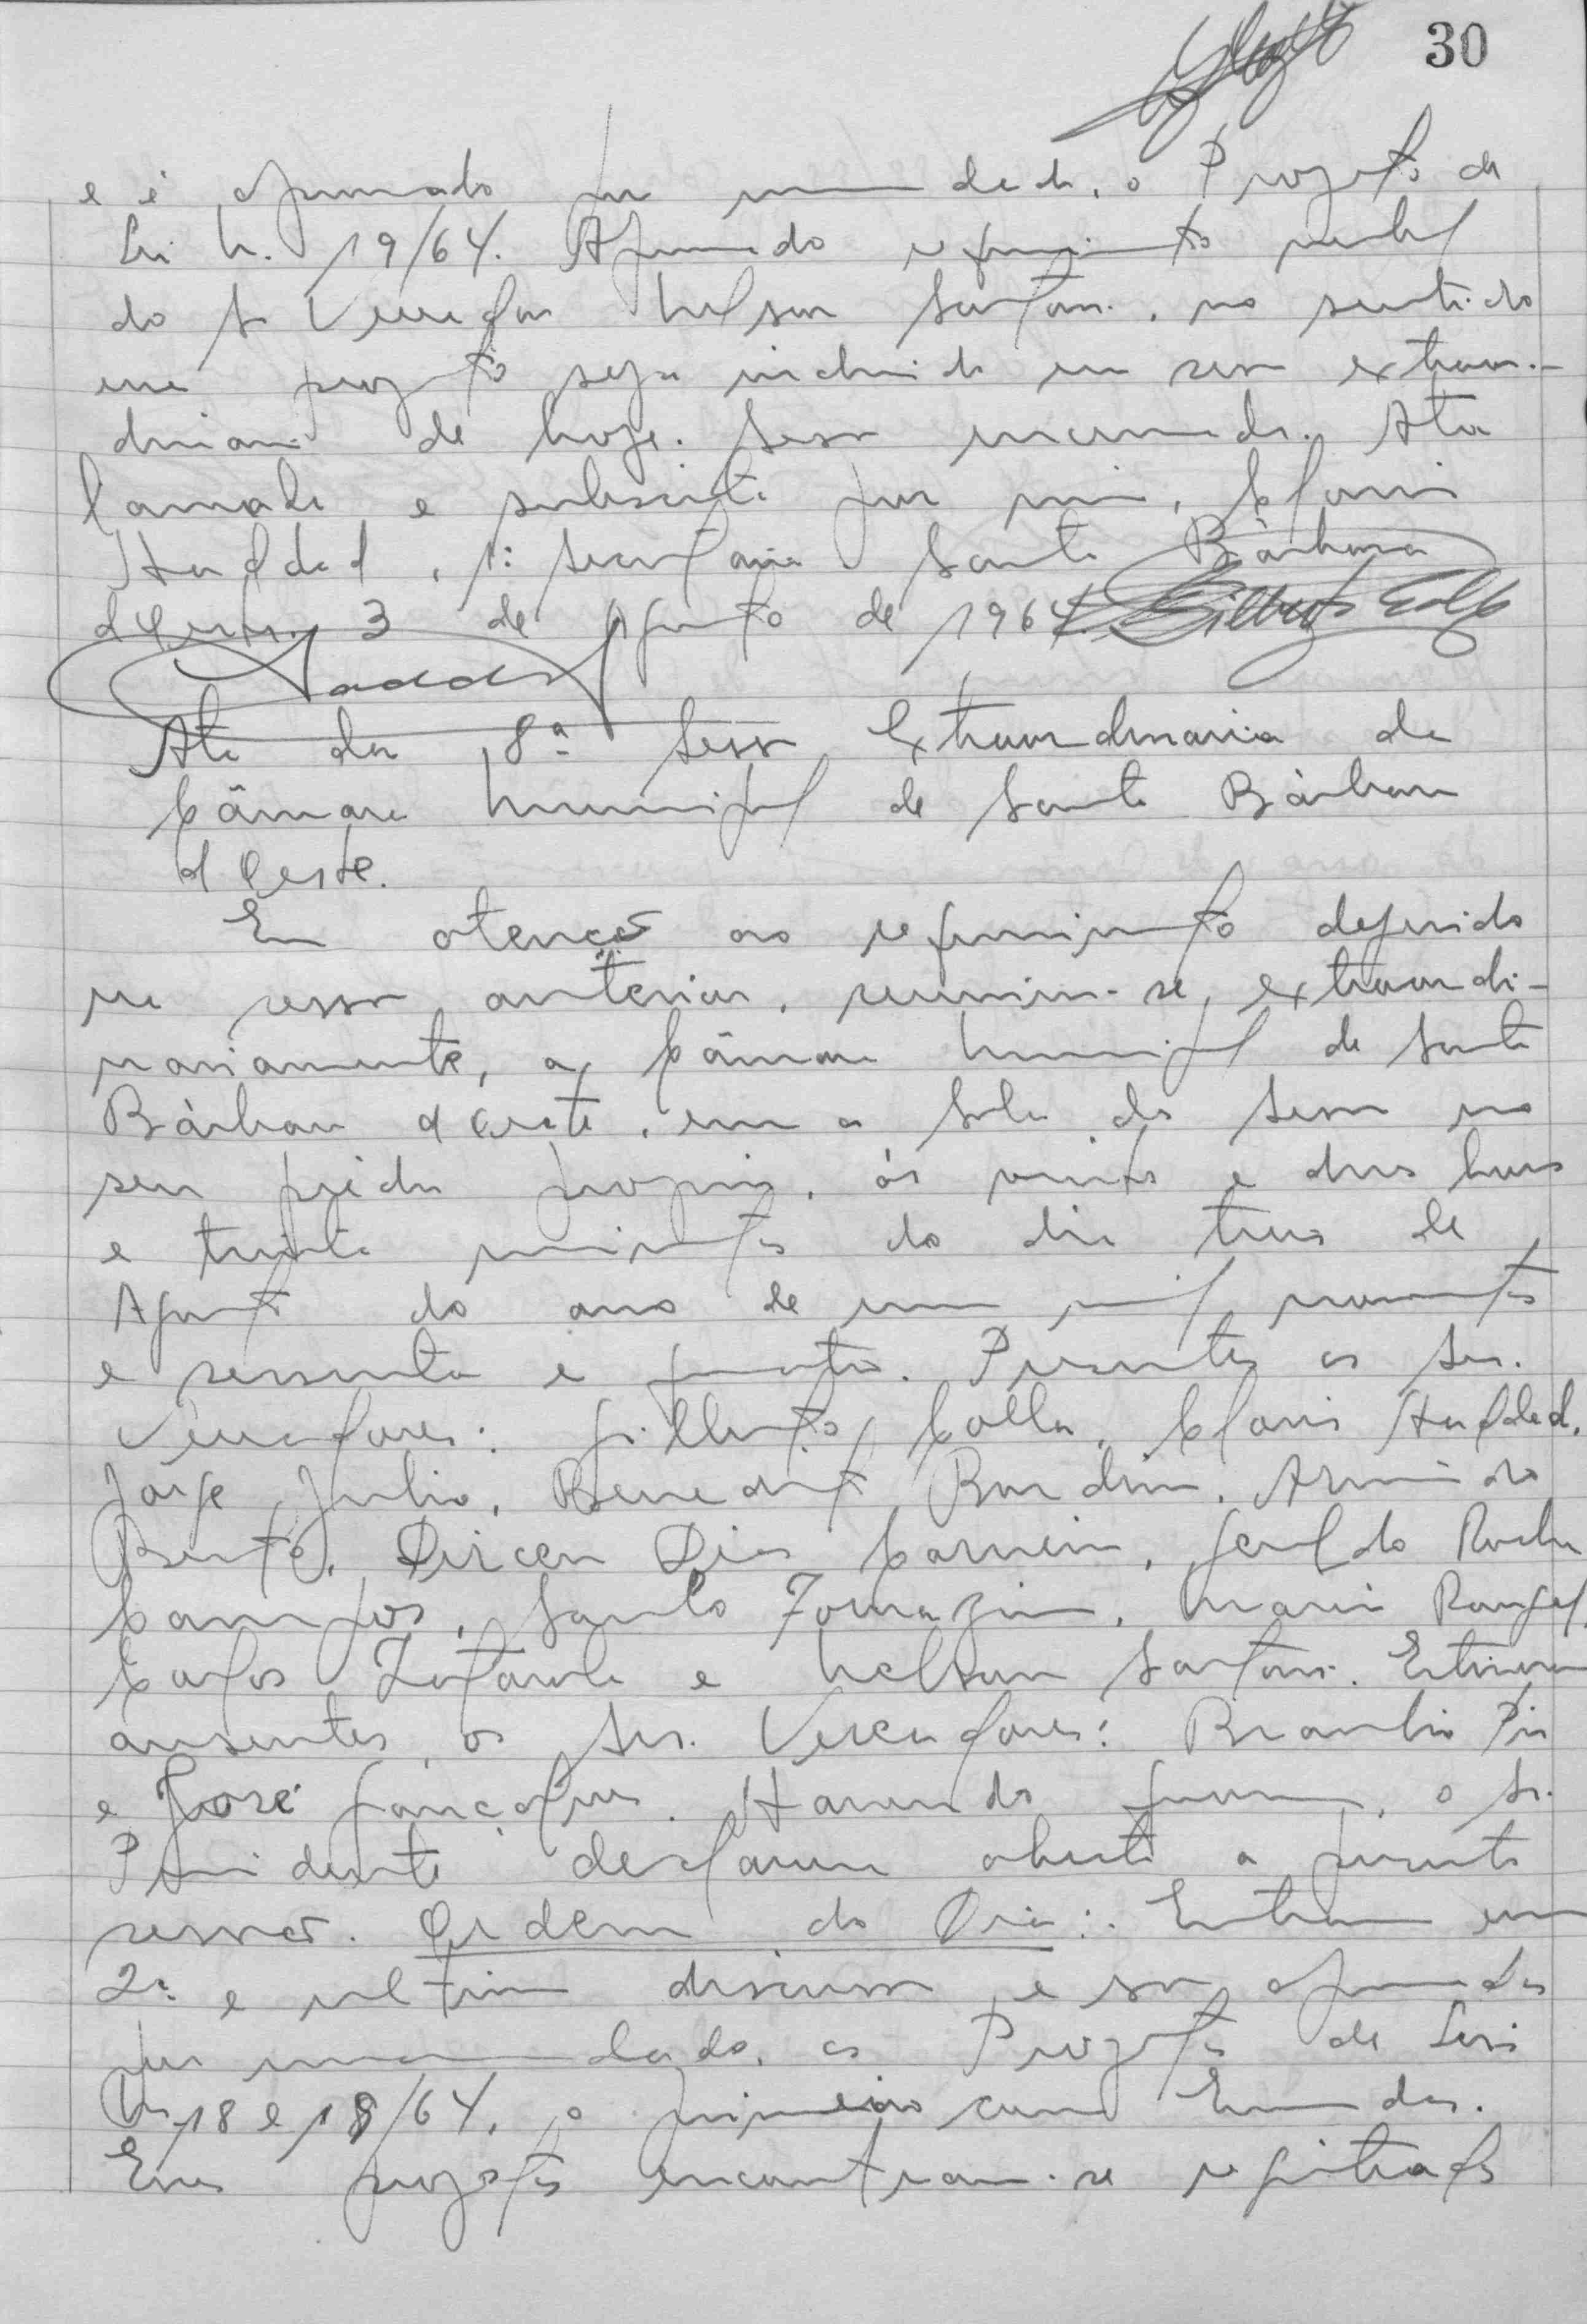 30
e é aprovado por unanimidade, o Projeto de
Lei n. 19/64. Aprovado requerimento verbal
do Sr Vereador Nelson Santoni, no sentido
projeto seja incluido em sessão extraor-
dinaria de hoje. Sessão encerrada. Ata
lavrada e subscrita por mim, Clovis
Haddad, 1º secretario Santa Bárbara
d'Oeste. 3 de Agosto de 1964.
Ata da 8ª Sessão Extraordinaria da
Câmara Municipal de Santa Bárbara
d'Oeste.
Em atenção ao requerimento deferido
na sessão anterior, reuniu-se, extraordi-
nariamente, a Câmara Municipal de Santa
Bárbara d'Oeste, em a Sala da Sessão no
seu prédio proprio, ás vinte e duas horas
e trinta minutos do dia tres de
Agosto do ano de um mil novecentos
e sessenta e quatro. Presentes os Srs.
Vereadores: Gilberto Colla, Clovis Haddad,
Jorge Julio, Benedito Bondim, Armindo
Bento, Dirceu Dias Carneiro, Geraldo Rocha
Campos, Santo Tomazim, Mario Rangel,
Carlos e Nelson Santoni. Estiveram
ausentes, os Srs. Vereadores: Braulio Pio
e José Gonçalves. Havendo quorum, o Sr.
Presidente declarou aberta a presente
sessão. Ordem do Dia: Entram em
2ª e ultima discussão e são aprovados
por unanimidade, os Projetos de Leis
Ns 18 e 19/64, o primeiro com Emendas.
Esses projetos encontram-se registrados